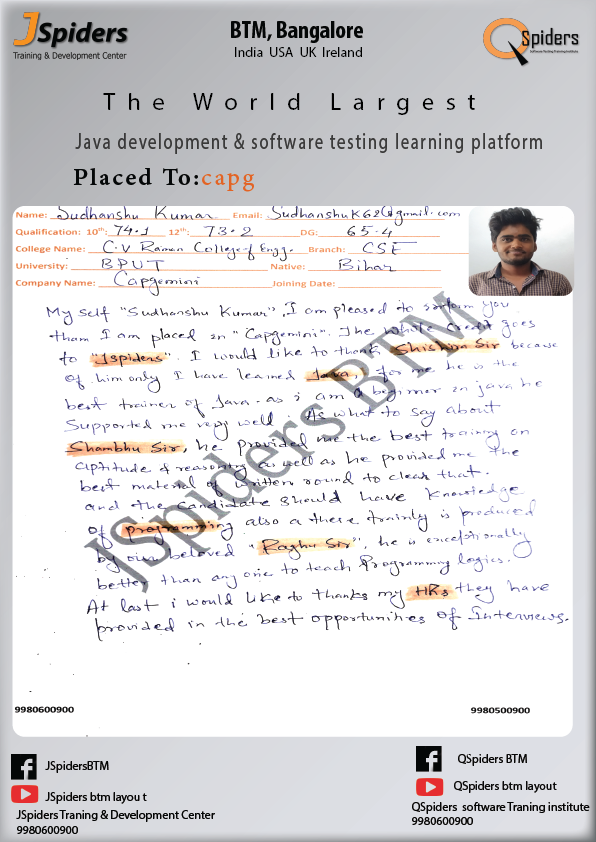 JSpiders
Training & Development Center
BTM, Bangalore
India USA UK Ireland
QSpiders
Software Testing Training Institute
The World Largest
Java development & software testing learning platform
Placed To:capg
Name: Sudhanshu Kumar Email: SudhanshuK62@gmail.com
Qualification: 10th: 74.1 12th: 73.2 DG: 65.4
College Name: C.V Raman College of Engg. Branch: CSE
University: BPUT Native: Bihar
Company Name: Capgemini Joining Date:
My self "Sudhanshu Kumar", I am pleased to inform you
tham I am placed in "Capgemini". The whole credit goes
to "Jspiders". I would like to thank Shishira Sir because
of him only I have learned Java, for me he is the
best trainer of Java. as i am a beginner in java he
Supported me very well. As what to say about
Shambhu Sir, he provided me the best training on
aptitude & reasoning as well as he provided me the
best material of written round to clear that.
and the candidate should have knowledge
of programming also a these trainly is produced
by our beloved "Raghu Sir", he is exceptionally
better than any one to teach Programming logics.
At last i would like to thanks my HRs they have
provided in the best opportunities of Interviews.
JSpiders BTM
9980600900 9980500900
JSpidersBTM
JSpiders btm layou t
JSpiders Traning & Development Center
9980600900
QSpiders BTM
QSpiders btm layout
QSpiders software Traning institute
9980600900